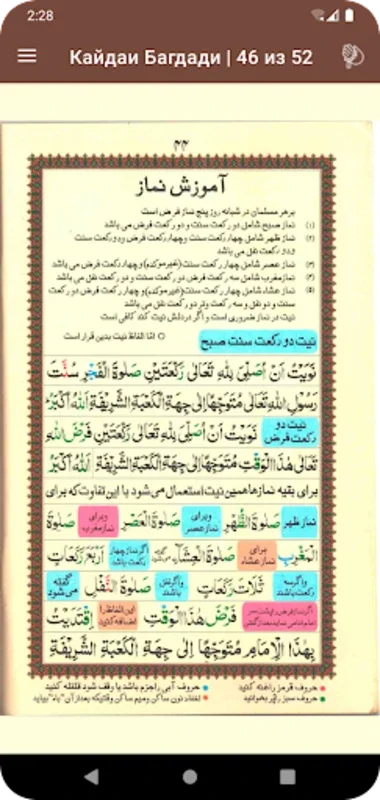 2:28
Кайдаи Багдади | 46 из 52
۴۴
آموزش نماز
بر هر مسلمان در شبانه روز پنج نماز فرض است
(۱) نماز صبح شامل دو رکعت سنت و دو رکعت فرض می باشد
(۲) نماز ظهر شامل چهار رکعت سنت و چهار رکعت فرض و دو رکعت سنت
و دو رکعت نفل می باشد
(۳) نماز عصر شامل چهار رکعت سنت (غیر موکد) و چهار رکعت فرض می باشد
(۴) نماز مغرب شامل سه رکعت فرض دو رکعت سنت و دو رکعت نفل می باشد
(۵) نماز عشاء شامل چهار رکعت سنت (غیر موکد) و چهار رکعت فرض دو رکعت
سنت و دو نفل و سه رکعت وتر دو رکعت نفل می باشد
نیت در نماز ضروری است و اگر در دلش نیت کند کافی است
نیت دو رکعت سنت صبح
اما الفاظ نیت بدین قرار است
نَوَيْتُ اَنْ اُصَلِّىَ لِلّٰهِ تَعَالٰى رَكْعَتَيْنِ صَلٰوةَ الْفَجْرِ سُنَّتَ
رَسُوْلِ اللهِ تَعَالٰى مُتَوَجِّهًا اِلٰى جِهَةِ الْكَعْبَةِ الشَّرِيْفَةِ اَللهُ اَكْبَرُ
نیت دو رکعت فرض
نَوَيْتُ اَنْ اُصَلِّىَ لِلّٰهِ تَعَالٰى رَكْعَتَيْنِ فَرْضَ اللهِ
تَعَالٰى هٰذَا الْوَقْتِ مُتَوَجِّهًا اِلٰى جِهَةِ الْكَعْبَةِ الشَّرِيْفَةِ اَللهُ اَكْبَرُ
برای بقیه نمازها همین نیت استعمال می شود با این تفاوت که برای
نماز ظهر صَلٰوةَ الظُّهْرِ وبرای نماز عصر صَلٰوةَ الْعَصْرِ وبرای نماز مغرب صَلٰوةَ
الْمَغْرِبِ برای نماز عشاء صَلٰوةَ الْعِشَآءِ میگوئید اگر نماز چهار رکعت باشد اَرْبَعَ رَكْعَاتٍ
واگر سه رکعت باشد ثَلَاثَ رَكْعَاتٍ واگر نفل باشند صَلٰوةَ النَّفْلِ گفته می شود
فَرْضَ هٰذَا الْوَقْتِ این الفاظ را اضافه کنید اِقْتَدَيْتُ
بِهٰذَا الْاِمَامِ مُتَوَجِّهًا اِلٰى جِهَةِ الْكَعْبَةِ الشَّرِيْفَةِ
حروف قرمز را غنه کنید
حروف آبی را جزم باشد یا وقف شود قلقله کنید
حروف سبز را پر بخوانید